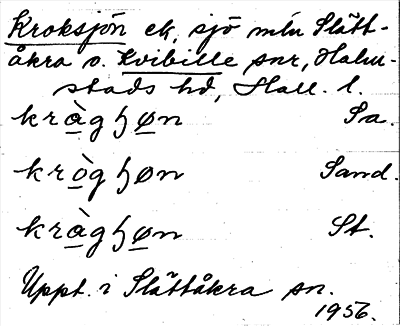 Kroksjön ek, sjö mln Slätt-
åkra o. Kvibille snr, Halm-
stads hd, Hall. l.
kràgɧøn Sa.
krògɧøn Sand.
kràgɧøn St.
Uppt. i Slättåkra sn.
1956.